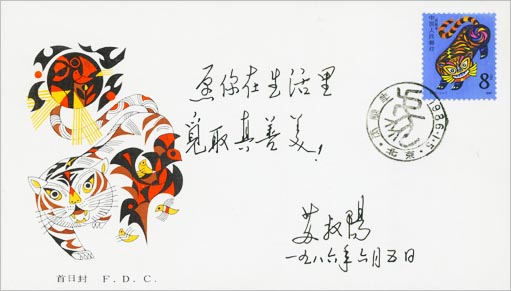 中国人民邮政
8分
愿你在生活里
觅取真善美!
1986.1.5
北京
苏叔陽
一九八六年六月五日
首日封 F. D. C.